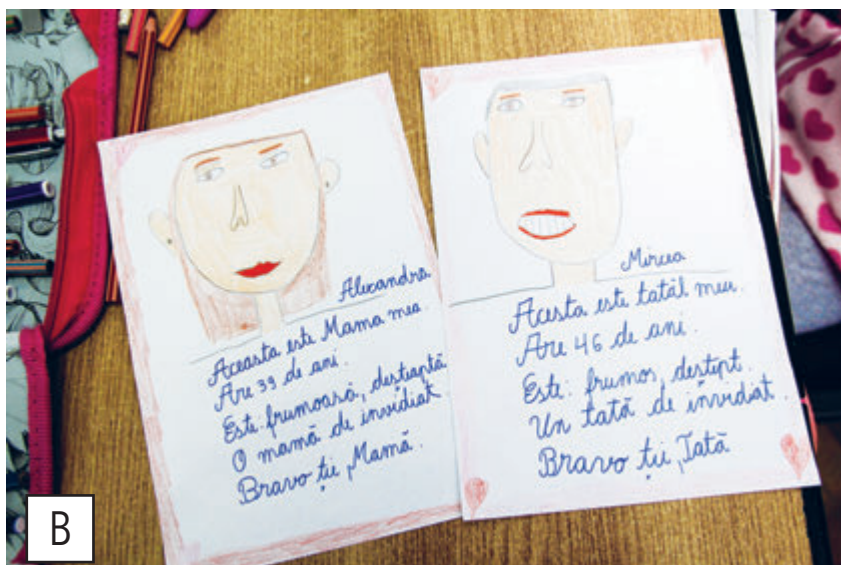 Alexandra
Aceasta este Mama mea.
Are 39 de ani.
Este: frumoasă, deșteaptă
O mamă de invidiat.
Bravo ție, Mamă.
Mircea
Acesta este tatăl meu.
Are 46 de ani.
Este: frumos, deștept.
Un tată de invidiat.
Bravo ție, Tată
B